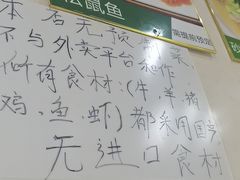 松鼠鱼
需提前预定
本店无预制菜
不与外卖平台合作
所有食材:(牛,羊,猪
鸡,鱼,虾)都采用国产
无进口食材